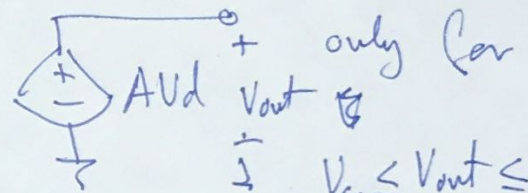 + only for
+
- AVd Vout
-
V < Vout ≤